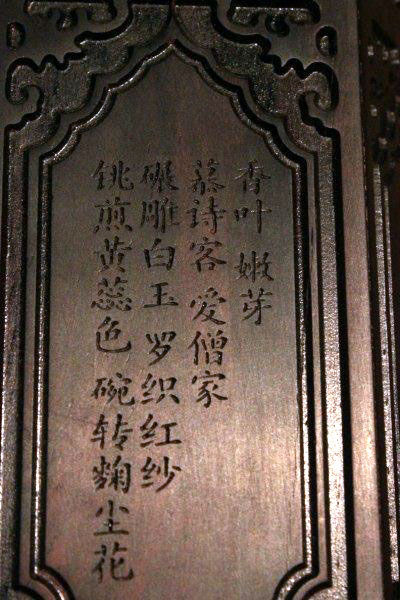 香叶 嫩芽
慕詩客 愛僧家
碾雕白玉 罗织红纱
铫煎黄蕊色 碗转麴尘花